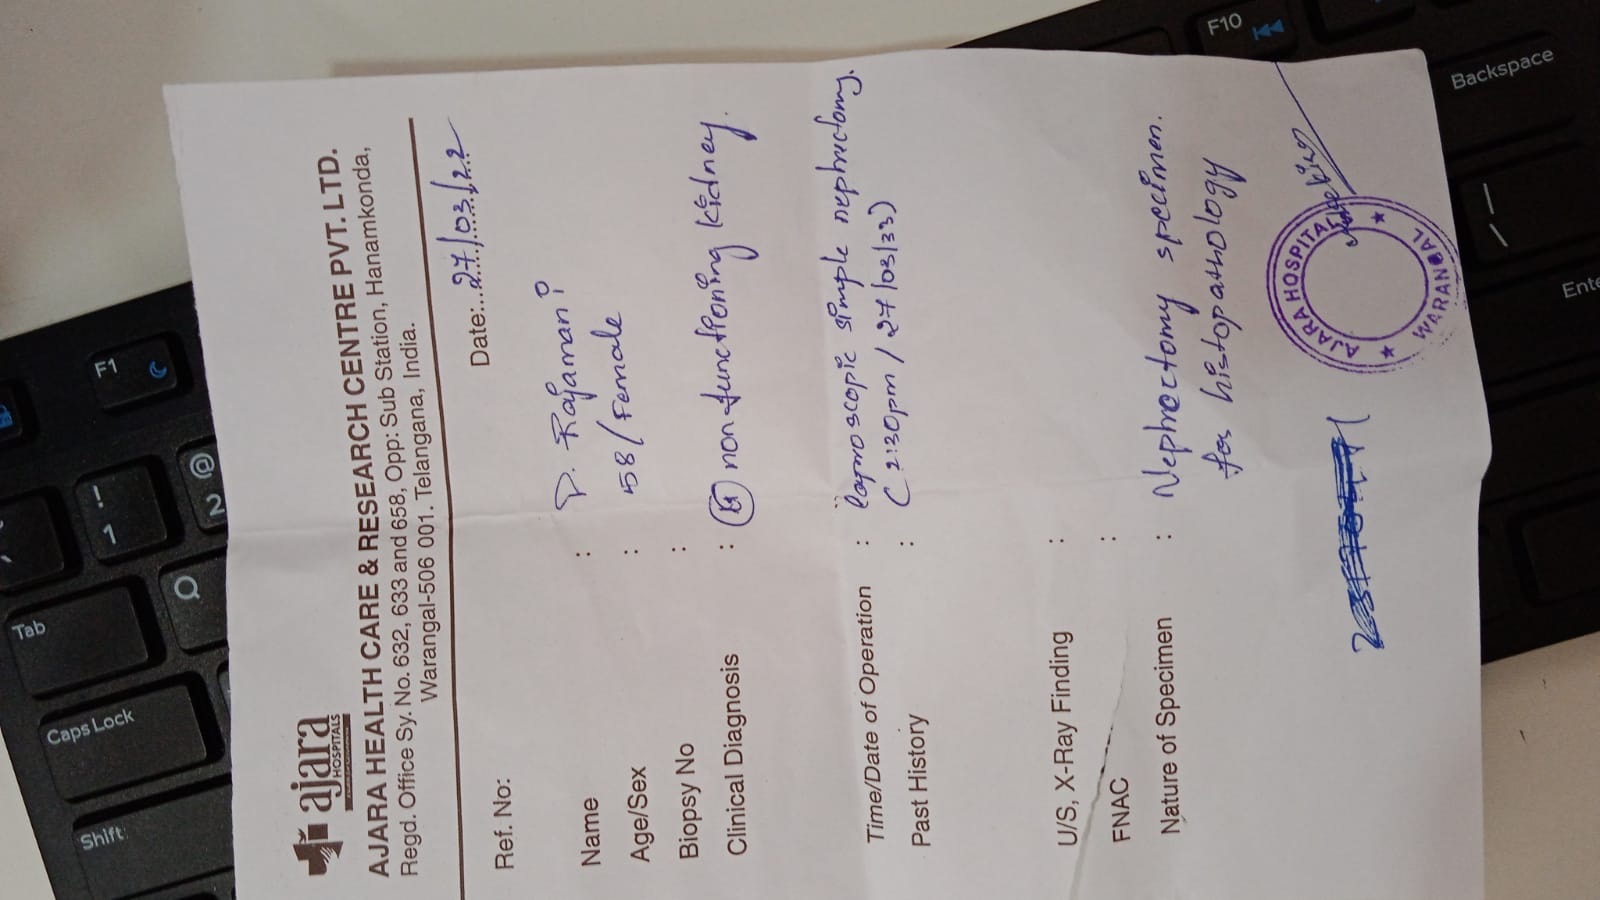 ajara
HOSPITALS
AJARA HEALTH CARE & RESEARCH CENTRE PVT. LTD.
Regd. Office Sy. No. 632, 633 and 658, Opp: Sub Station, Hanamkonda,
Warangal-506 001. Telangana, India.
Date:..27/03/22
Ref. No:
Name : P. Rajamani
Age/Sex : 58/Female
Biopsy No :
Clinical Diagnosis : non functioning kidney.
Time/Date of Operation : laproscopic simple nephrectomy.
Past History : (2:30pm / 27/03/22)
U/S, X-Ray Finding :
FNAC :
Nature of Specimen : Nephrectomy specimen.
for histopathology
AJARA HOSPITAL
WARANGAL
F1
F10
Backspace
Tab
Caps Lock
Shift
Q
!
1
@
2
Ente